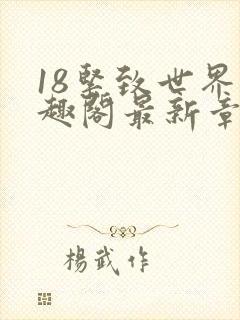 18坚致世界
趣阁最新章
楊武作